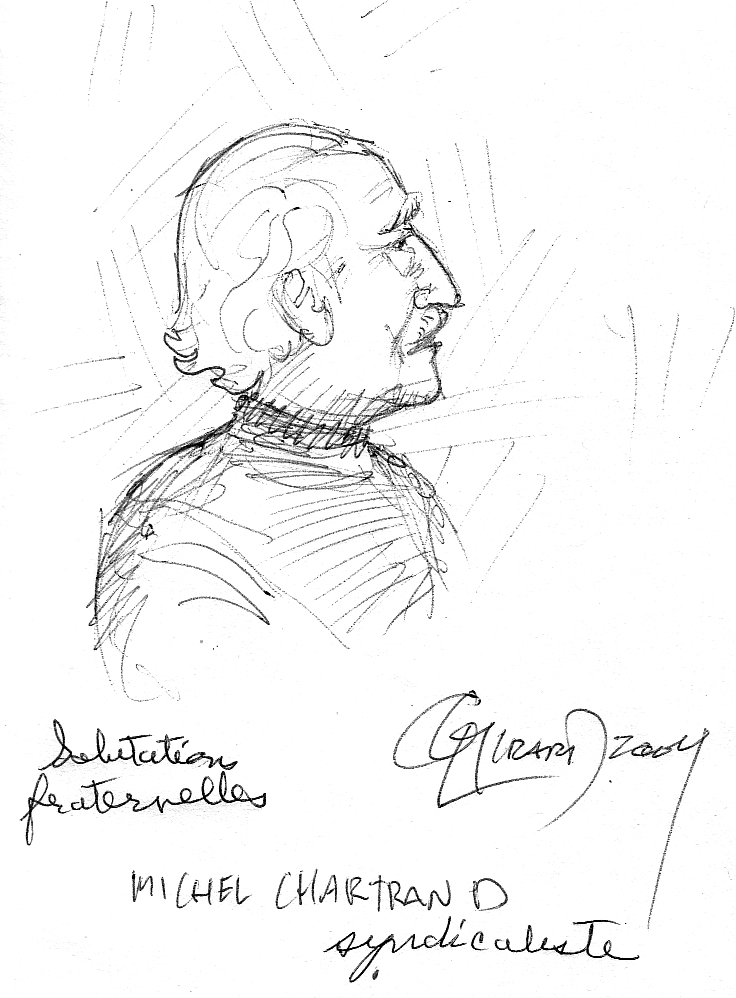 Salutations
fraternelles
Girard 2004
MICHEL CHARTRAND
syndicaliste